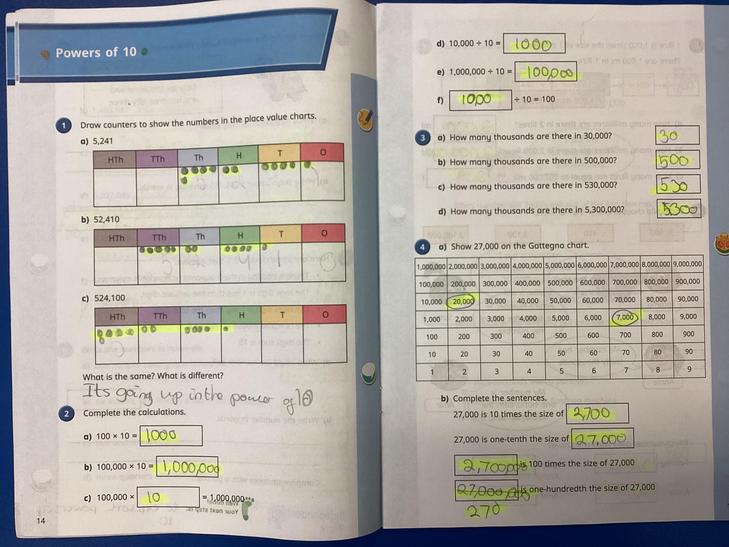 Powers of 10
1 Draw counters to show the numbers in the place value charts.
a) 5,241
HTh TTh Th H T O
b) 52,410
HTh TTh Th H T O
c) 524,100
HTh TTh Th H T O
What is the same? What is different?
Its going up in the power of 10
2 Complete the calculations.
a) 100 × 10 = 1000
b) 100,000 × 10 = 1,000,000
c) 100,000 × 10 = 1,000,000
14
d) 10,000 ÷ 10 = 1000
e) 1,000,000 ÷ 10 = 100,000
f) 1000 ÷ 10 = 100
3 a) How many thousands are there in 30,000? 30
b) How many thousands are there in 500,000? 500
c) How many thousands are there in 530,000? 530
d) How many thousands are there in 5,300,000? 5300
4 a) Show 27,000 on the Gattegno chart.
1,000,000 2,000,000 3,000,000 4,000,000 5,000,000 6,000,000 7,000,000 8,000,000 9,000,000
100,000 200,000 300,000 400,000 500,000 600,000 700,000 800,000 900,000
10,000 20,000 30,000 40,000 50,000 60,000 70,000 80,000 90,000
1,000 2,000 3,000 4,000 5,000 6,000 7,000 8,000 9,000
100 200 300 400 500 600 700 800 900
10 20 30 40 50 60 70 80 90
1 2 3 4 5 6 7 8 9
b) Complete the sentences.
27,000 is 10 times the size of 2,700
27,000 is one-tenth the size of 27,000
2,700,000 is 100 times the size of 27,000
27,000 is one-hundredth the size of 27,000
270